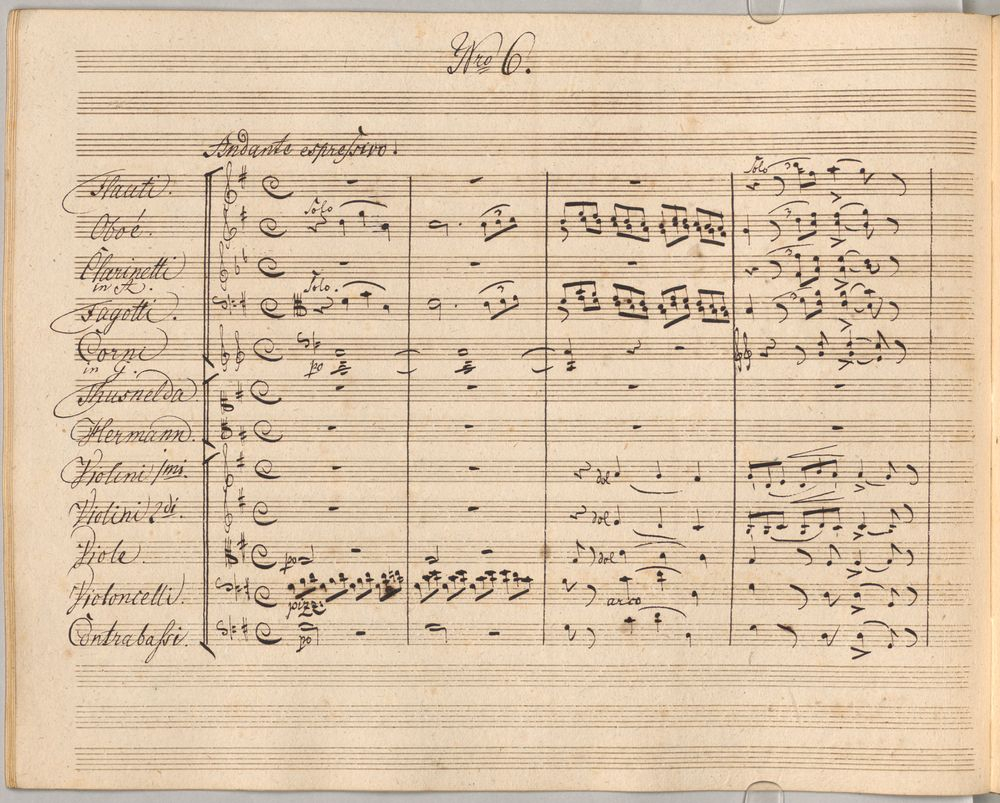 Nro 6.
Andante espressivo.
Flauti.
Solo
Oboé.
Solo
Clarinetti
in A.
Fagotti.
Solo.
Corni
in G.
po
Thusnelda.
Hermann.
Violini 1mi.
dol
Violini 2di.
dol
Viole.
po
dol
Violoncelli.
pizz:
arco
Contrabassi.
po
3
3
3
3